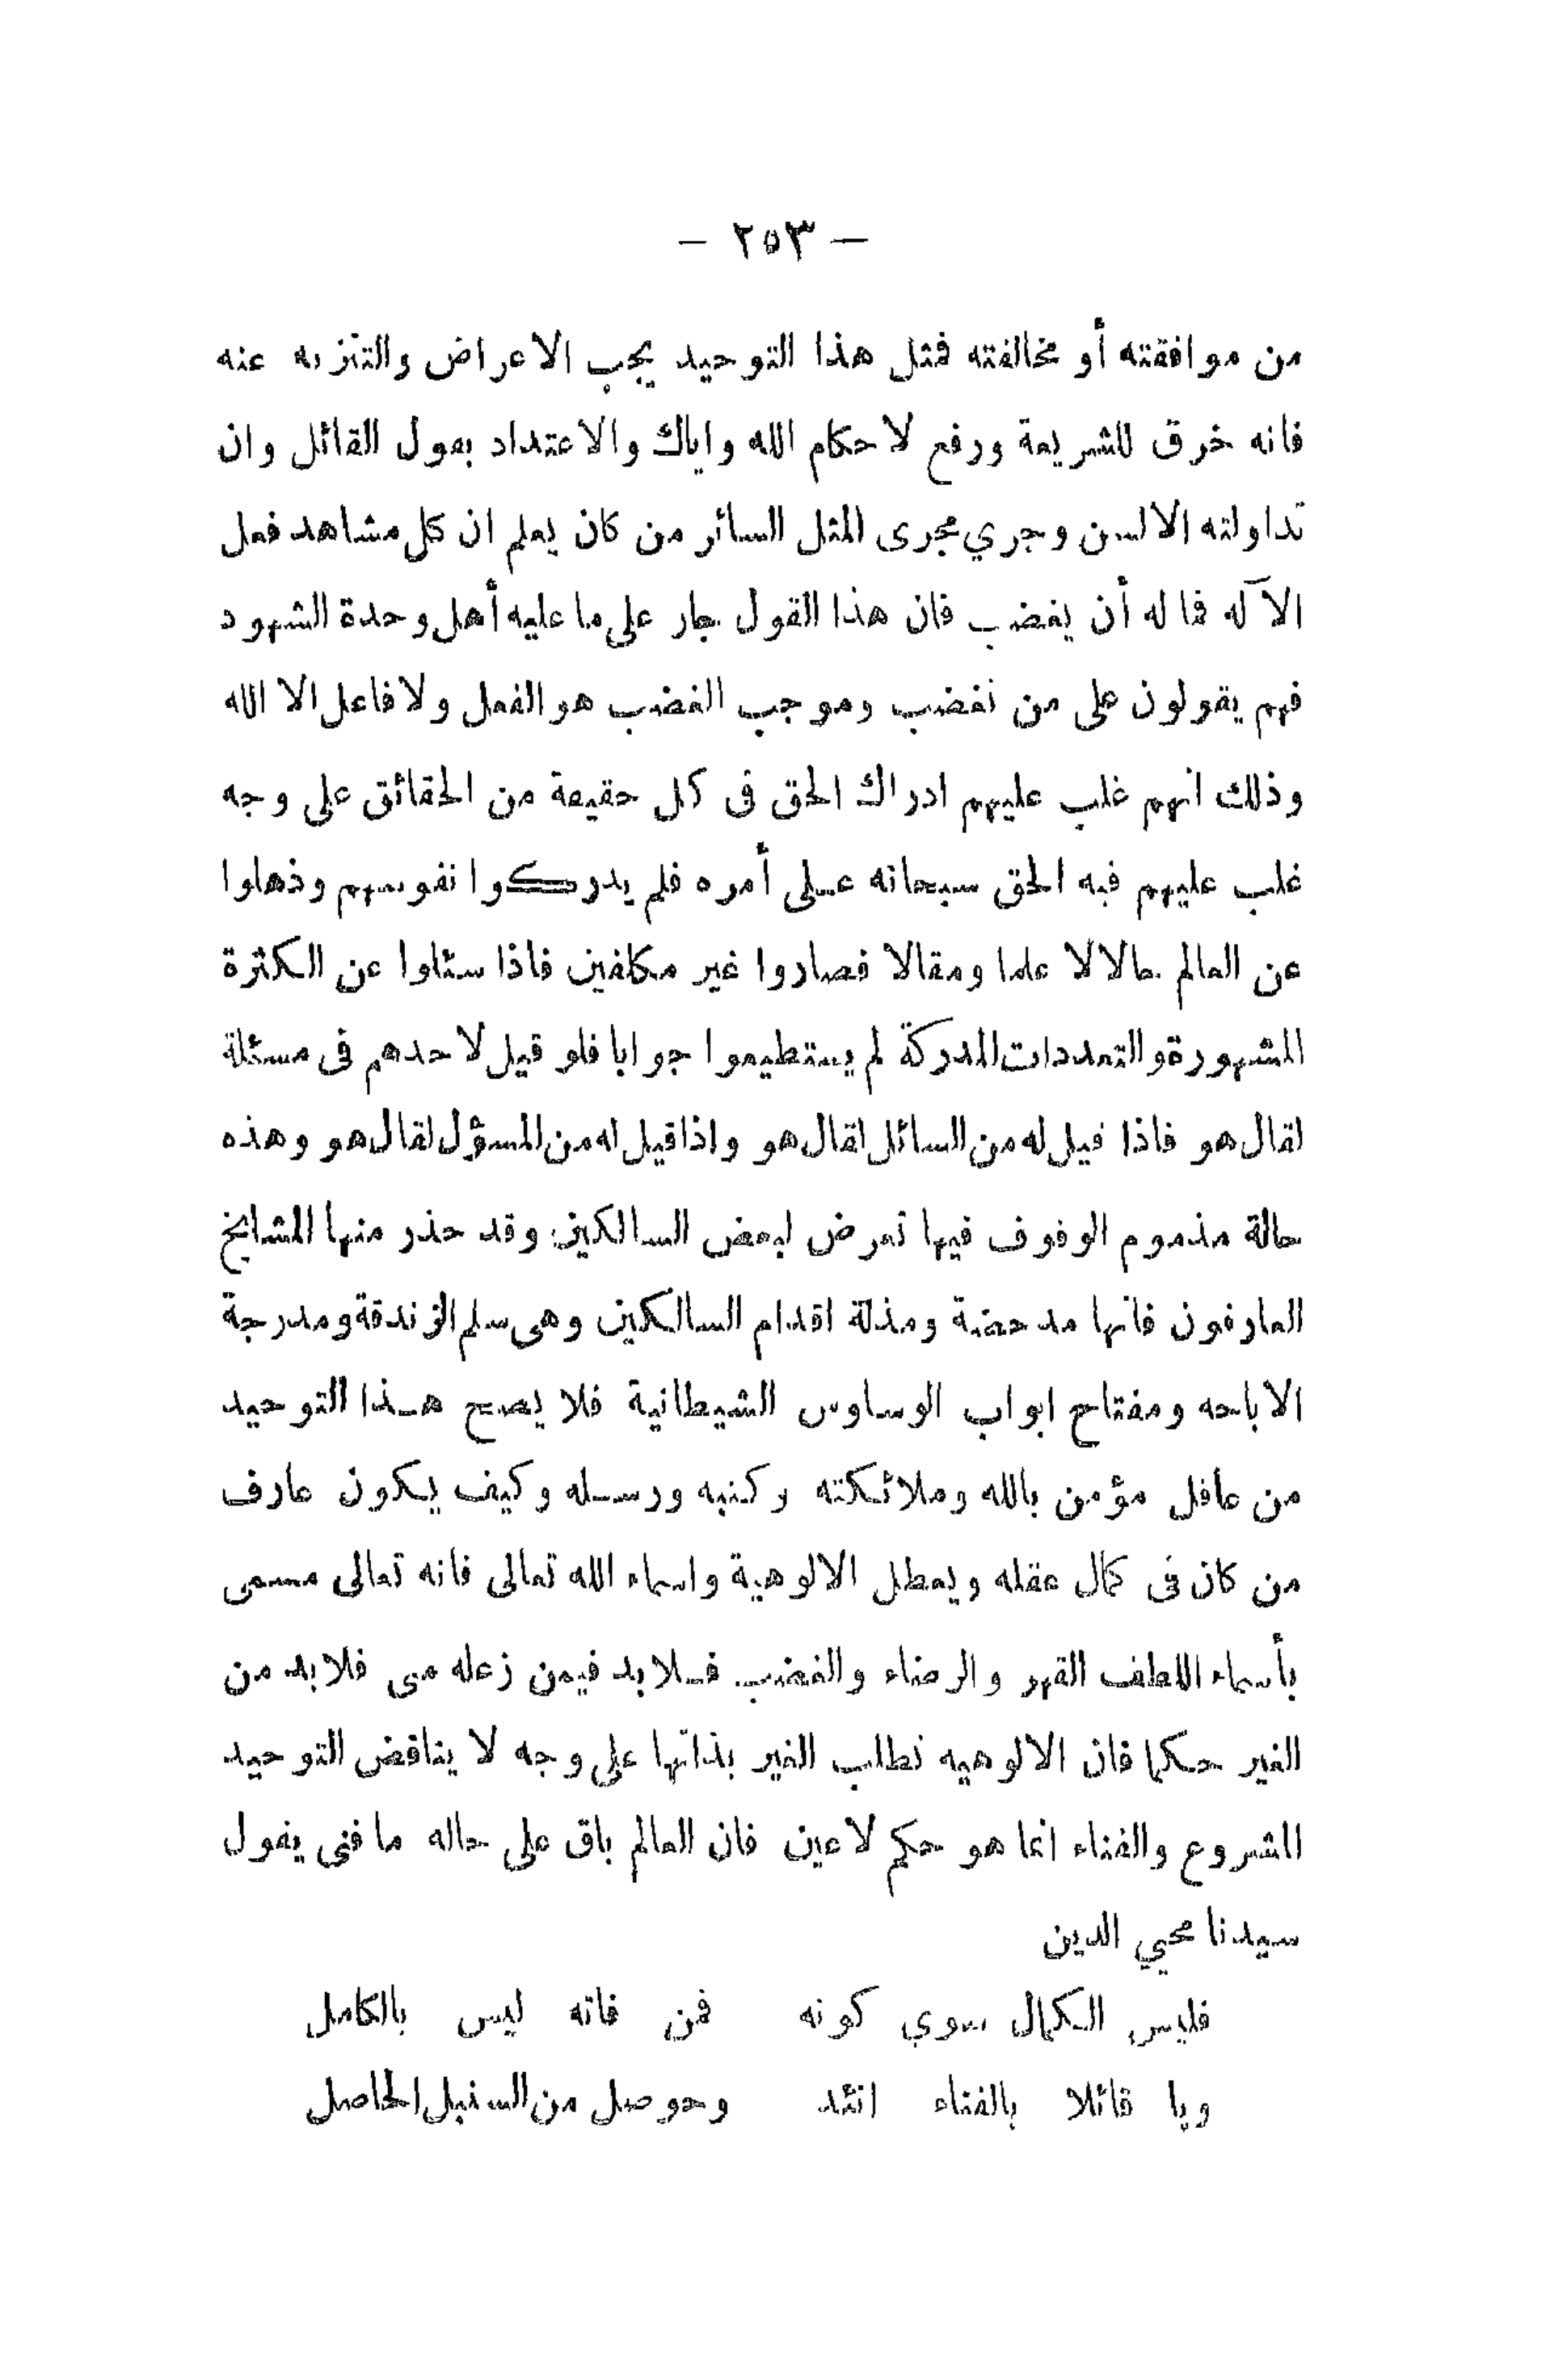 — ٢٥٣ —
من موافقته أو مخالفته فمثل هذا التوحيد يجب الاعراض والتنزيه عنه
فانه خرق للشريعة ورفع لاحكام الله واياك والاعتداد بقول القائل وان
تداولته الالسن وجري مجرى المثل السائر من كان يعلم ان كل مشاهد فعل
الآله فما له أن يغضب فان هذا القول جار على ما عليه أهل وحدة الشهود
فهم يقولون على من نغضب وموجب الغضب هو الفعل ولا فاعل الا الله
وذلك انهم غلب عليهم ادراك الحق فى كل حقيقة من الحقائق على وجه
غلب عليهم فيه الحق سبحانه على أمره فلم يدركوا نفوسهم وذهلوا
عن العالم حالا لا علما ومقالا فصاروا غير مكلفين فاذا سئلوا عن الكثرة
المشهورة والتعددات المدركة لم يستطيعوا جوابا فلو قيل لاحدهم فى مسئلة
لقال هو فاذا قيل له من السائل لقال هو واذا قيل له من المسؤل لقال هو وهذه
حالة مذموم الوقوف فيها تعرض لبعض السالكين وقد حذر منها المشايخ
العارفون فانها مدحضة ومذلة اقدام السالكين وهى سلم الزندقة ومدرجة
الاباحه ومفتاح ابواب الوساوس الشيطانية فلا يصح هذا التوحيد
من عاقل مؤمن بالله وملائكته وكتبه ورسله وكيف يكون عارف
من كان فى كمال عقله ويعطل الالوهية واسماء الله تعالى فانه تعالى مسمى
بأسماء اللطف القهر والرضاء والغضب فلا بد فيمن زعله مى فلا بد من
الغير حكما فان الالوهيه تطلب الغير بذاتها على وجه لا يناقض التوحيد
المشروع والفناء انما هو حكم لا عين فان العالم باق على حاله ما فنى يقول
سيدنا محيي الدين
فليس الكمال سوي كونه فمن فاته ليس بالكامل
ويا قائلا بالفناء اتئد وحوصل من السنبل الحاصل